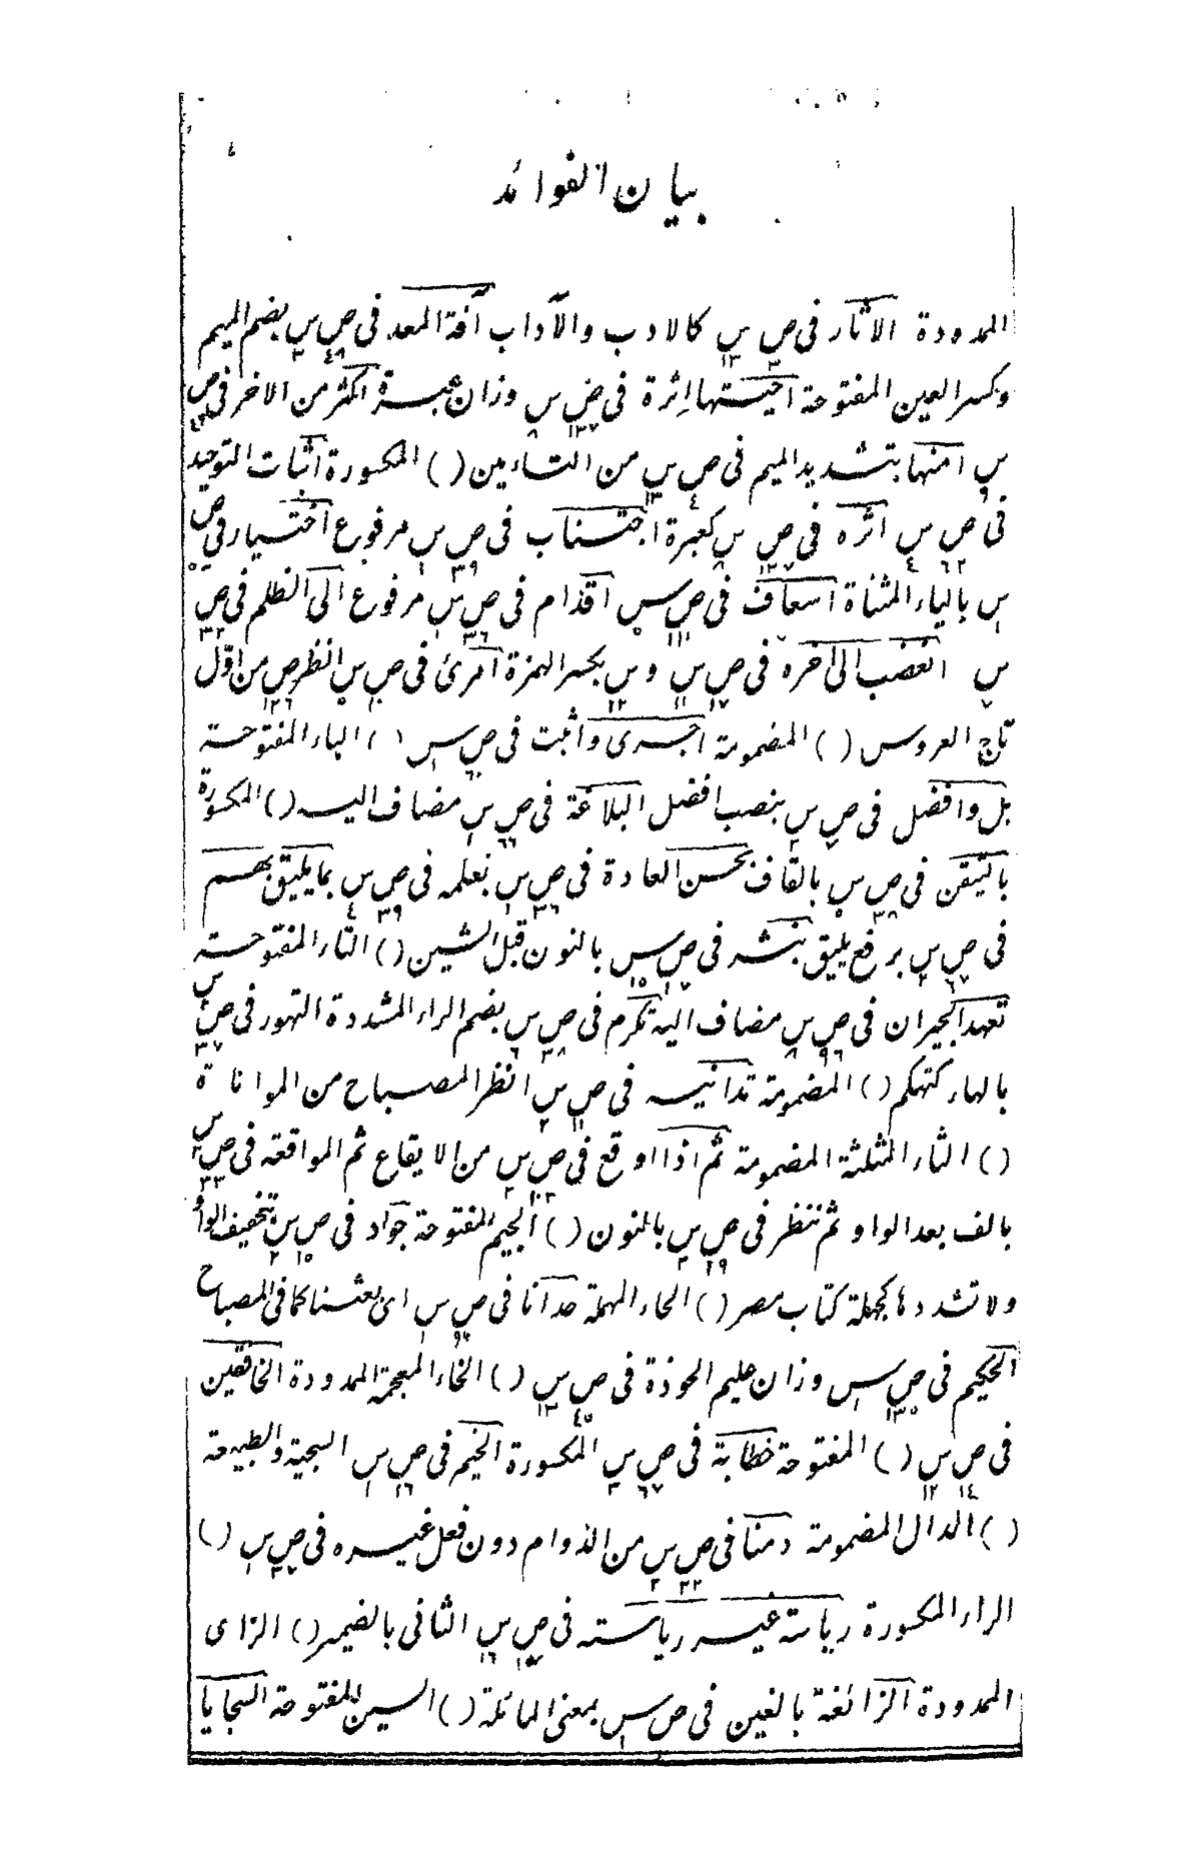 بيان الفوائد
الممدودة الآثار فى ص س كالادب والآداب آفة المعد فى ص س بضم الميم
وكسر العين المفتوحة احيتها اثرة فى ص س وزان عبرة اكثر من الاخر فى ص
س امنها بتشديد الميم فى ص س من التأمين () المكسورة اثبات التوحيد
فى ص س اثره فى ص س كعبرة اجتناب فى ص س مرفوع اختيار فى ص
س بالياء المثناة اسعاف فى ص س اقدام فى ص س مرفوع الى الظلم فى ص
س الغضب الى اخره فى ص س و س بكسر الهمزة امرئ فى ص س انظر ص من اوّل
تاج العروس () المضمومة اجرى واثبت فى ص س () الباء المفتوحة
بل وافضل فى ص س بنصب افضل البلاغة فى ص س مضاف اليه () المكسورة
باليقين فى ص س بالقاف بحسن العادة فى ص س بعلمه فى ص س بما يليق بهم
فى ص س برفع يليق بنشر فى ص س بالنون قبل الشين () التاء المفتوحة
تعهد الجيران فى ص س مضاف اليه تكرم فى ص س بضم الراء المشددة التهور فى ص س
بالهاء كتهكم () المضمومة تدانيه فى ص س انظر المصباح من المواناة
() الثاء المثلثة المضمومة ثم اذا اوقع فى ص س من الايقاع ثم المواقعة فى ص س
بالف بعد الواو ثم تنظر فى ص س بالنون () الجيم المفتوحة جواد فى ص س بتخفيف الواو
ولا تشددها كجهلة كتاب مصر () الحاء المهملة حدانا فى ص س اى بعثنا كما فى المصباح
الحكيم فى ص س وزان عليم الحوذة فى ص س () الخاء المعجمة الممدودة الخافقين
فى ص س () المفتوحة خطابة فى ص س المكسورة الخيم فى ص س السجية والطبيعة
() الدال المضمومة دمنا فى ص س من الدوام دون فعل غيره فى ص س ()
الراء المكسورة رياسة غير رياسته فى ص س الثانى بالضمير () الزاى
الممدودة الزائغة بالغين فى ص س بمعنى المائلة () السين المفتوحة السجايا